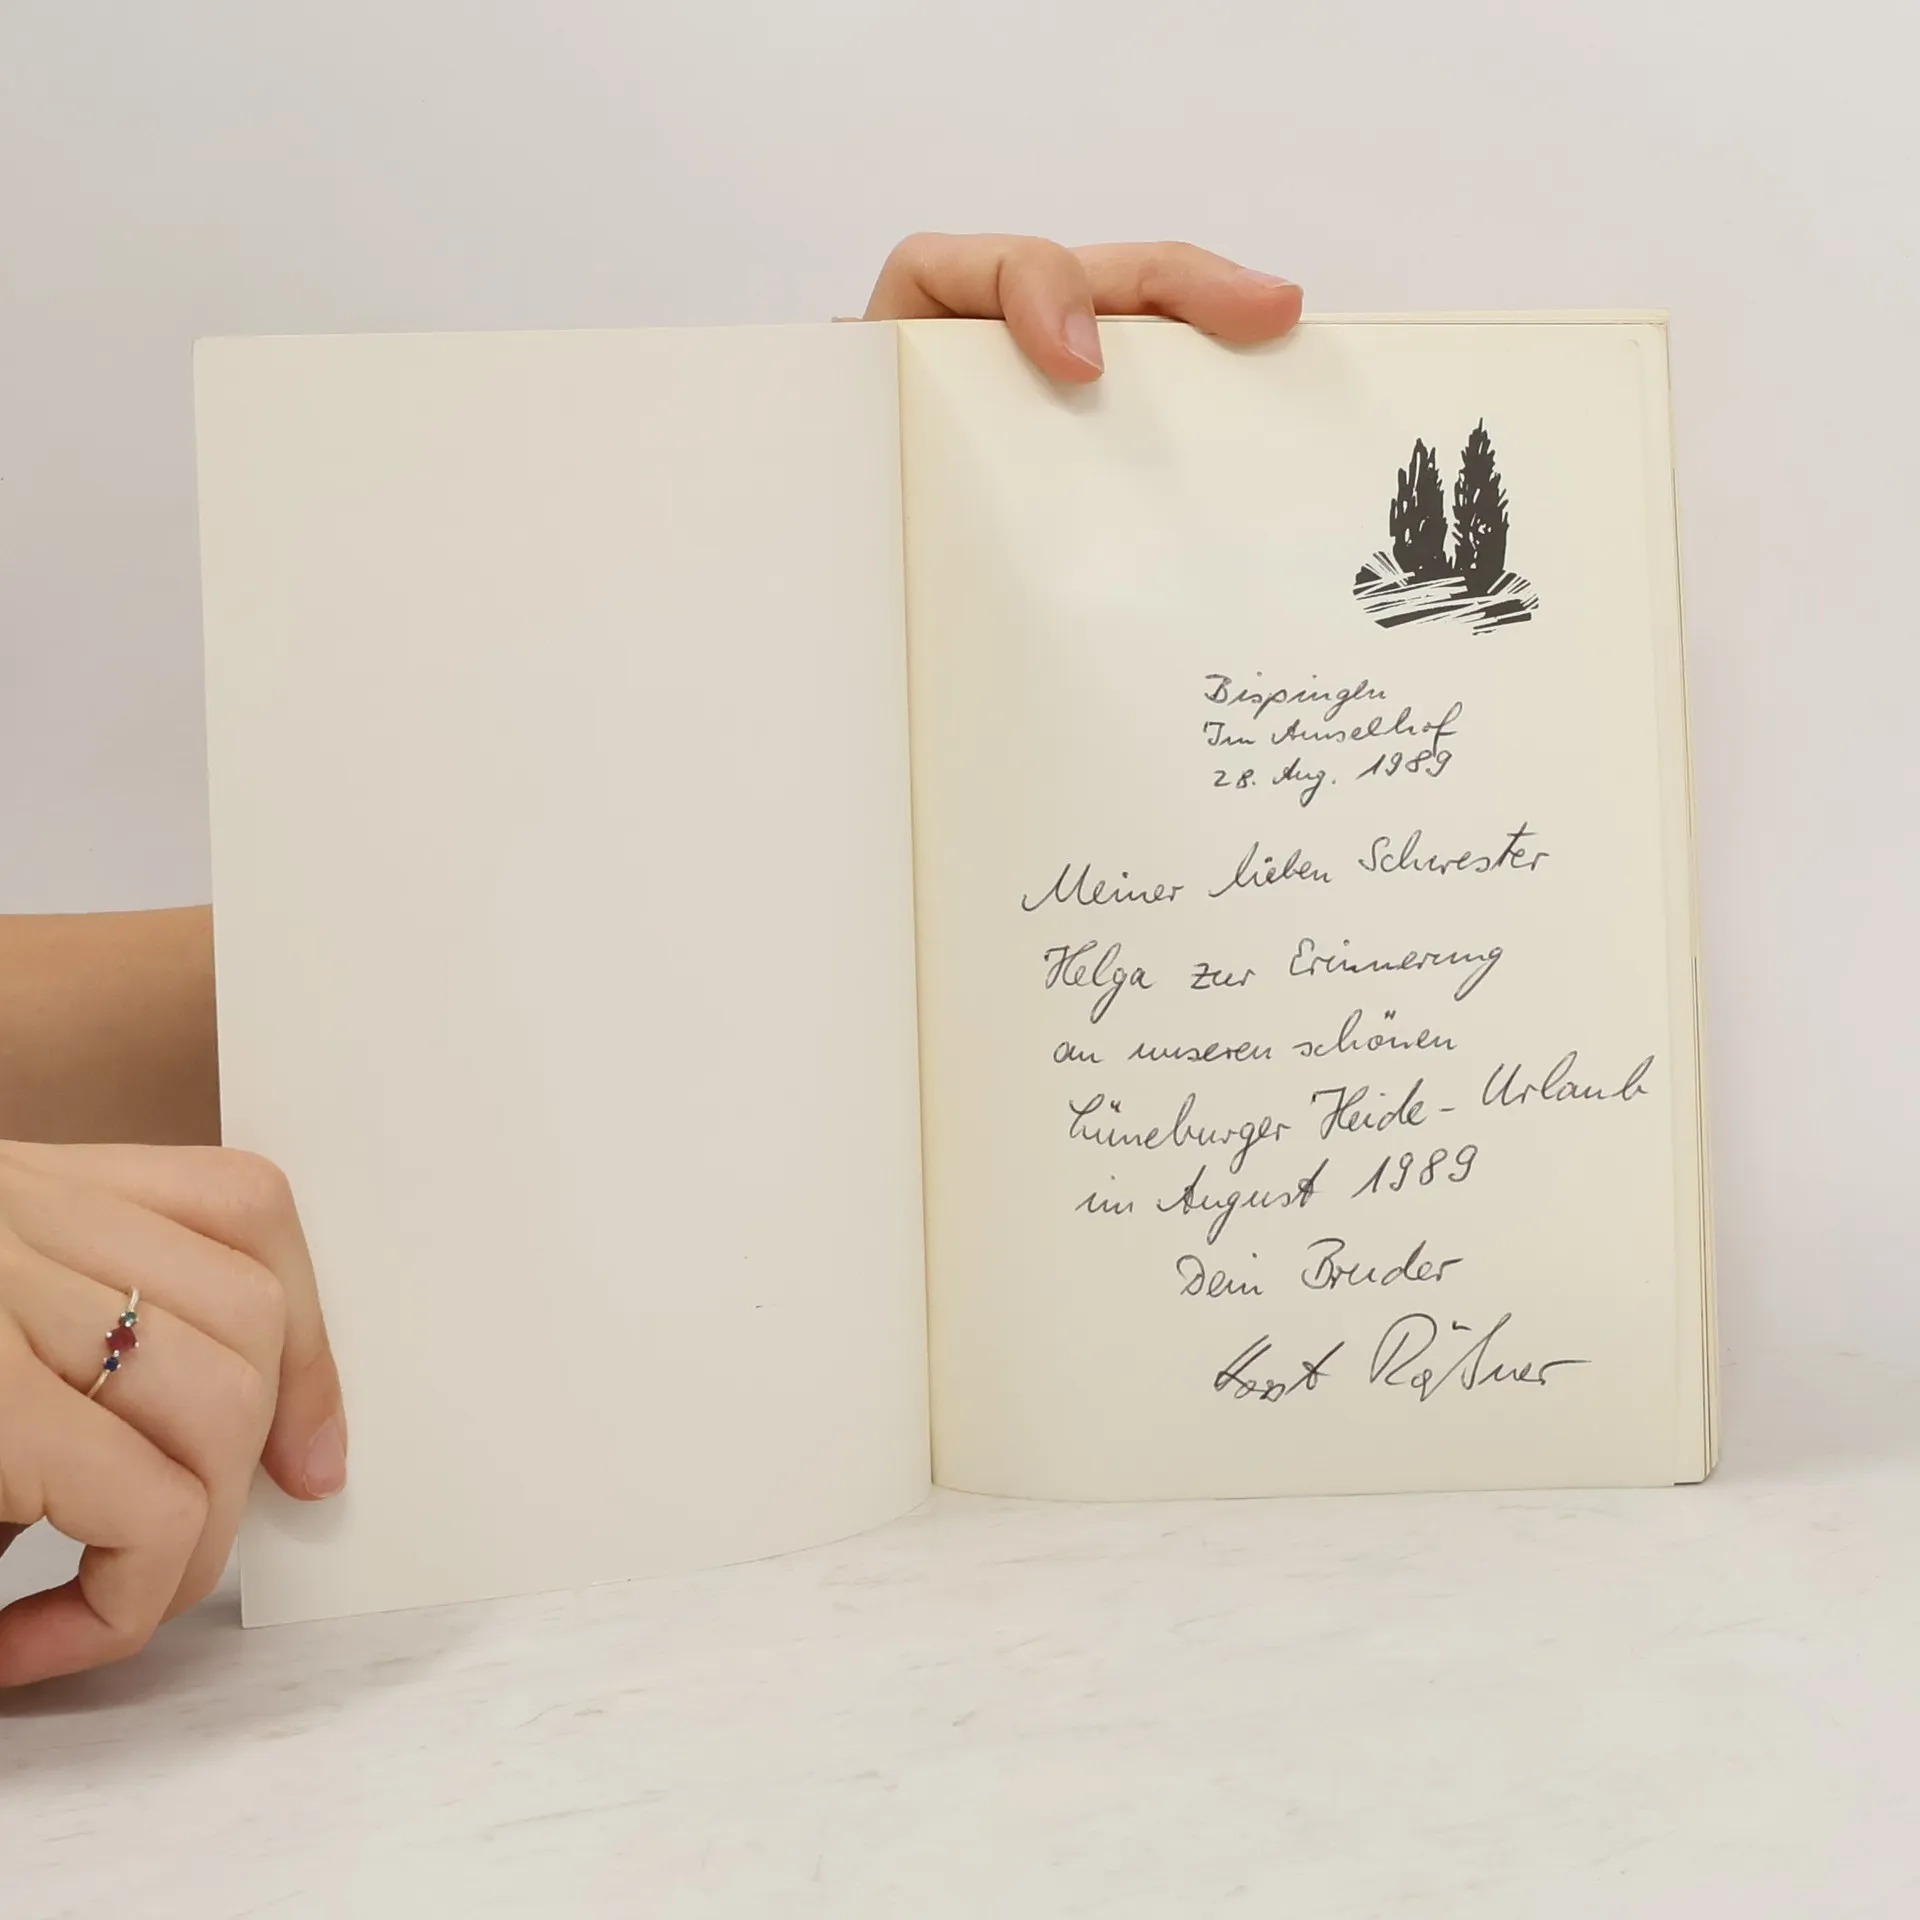 Bispingen
Im Amselhof
28. Aug. 1989
Meiner lieben Schwester
Helga zur Erinnerung
an unseren schönen
Lüneburger Heide-Urlaub
im August 1989
Dein Bruder
Horst Räßner